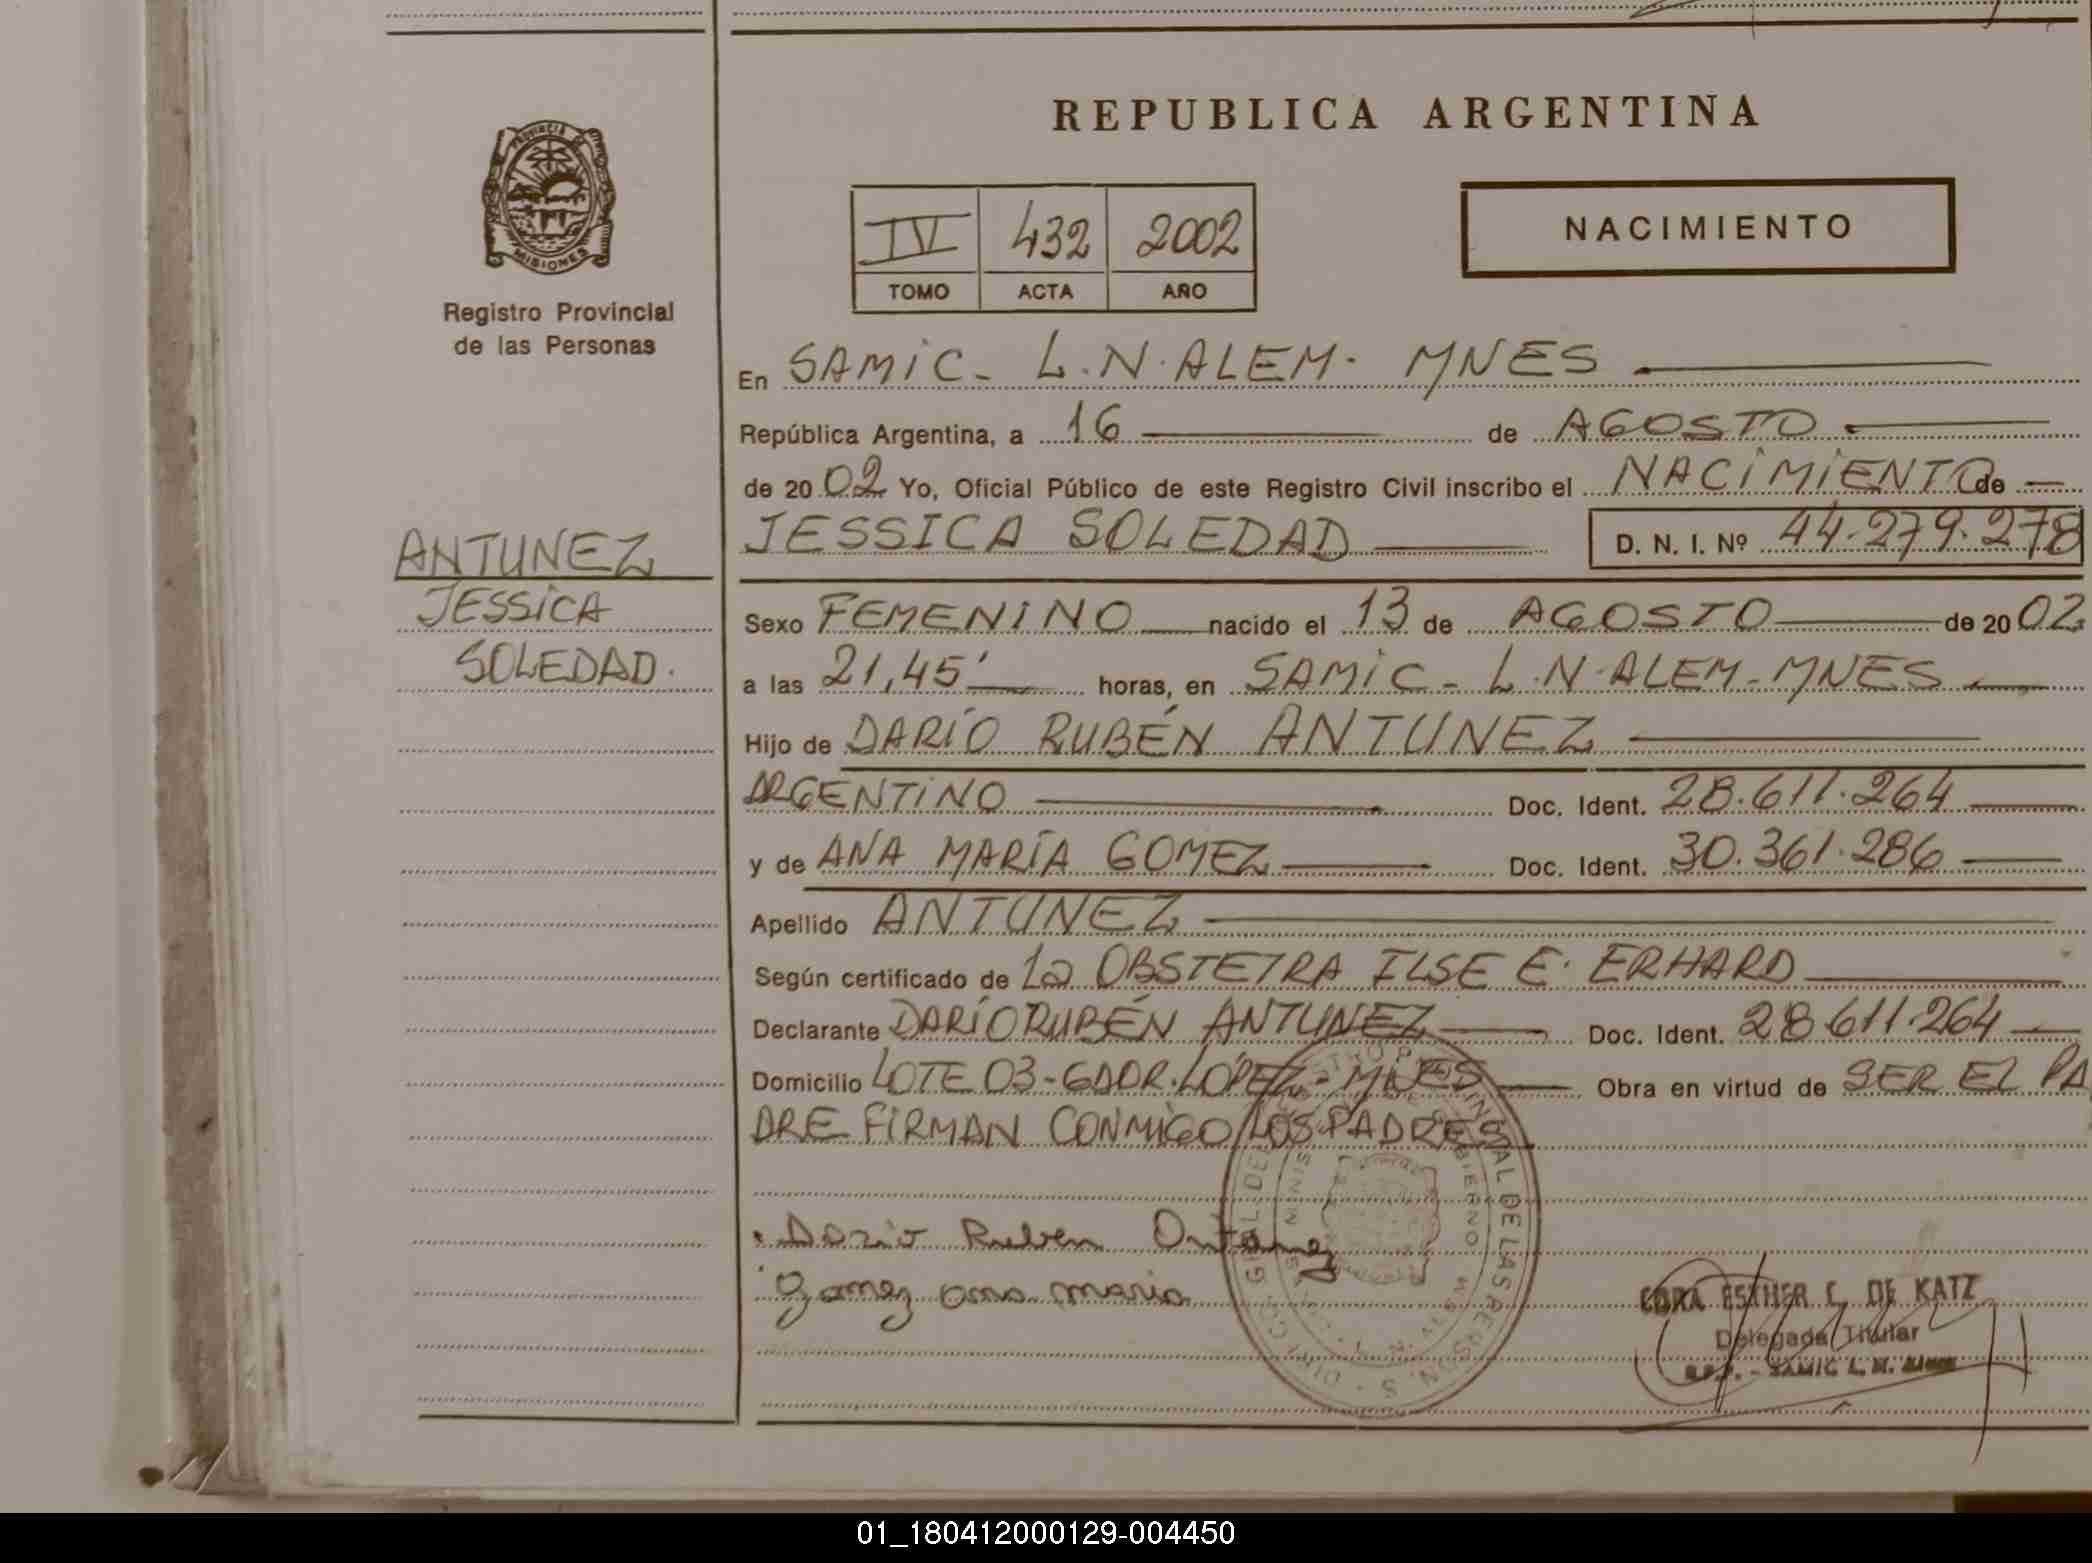 REPUBLICA ARGENTINA
PROVINCIA DE
MISIONES
Registro Provincial
de las Personas
IV 432 2002
TOMO ACTA AÑO
NACIMIENTO
En SAMIC - L.N. ALEM - MNES
República Argentina, a 16 de AGOSTO
de 2002 Yo, Oficial Público de este Registro Civil inscribo el NACIMIENTO de
JESSICA SOLEDAD D. N. I. Nº 44.279.278
ANTUNEZ
JESSICA
SOLEDAD.
Sexo FEMENINO nacido el 13 de AGOSTO de 2002
a las 21,45' horas, en SAMIC - L.N. ALEM - MNES
Hijo de DARÍO RUBÉN ANTUNEZ
ARGENTINO Doc. Ident. 28.611.264
y de ANA MARÍA GOMEZ Doc. Ident. 30.361.286
Apellido ANTUNEZ
Según certificado de La OBSTETRA ILSE E. ERHARD
Declarante DARÍO RUBÉN ANTUNEZ Doc. Ident. 28.611.264
Domicilio LOTE 03 - GDOR. LÓPEZ - MNES Obra en virtud de SER EL PA
DRE FIRMAN CONMIGO LOS PADRES
Dario Ruben Antunez
Gomez ana maria
ESTHER C. DE KATZ
Delegada Titular
SAMIC L. N.
01_180412000129-004450